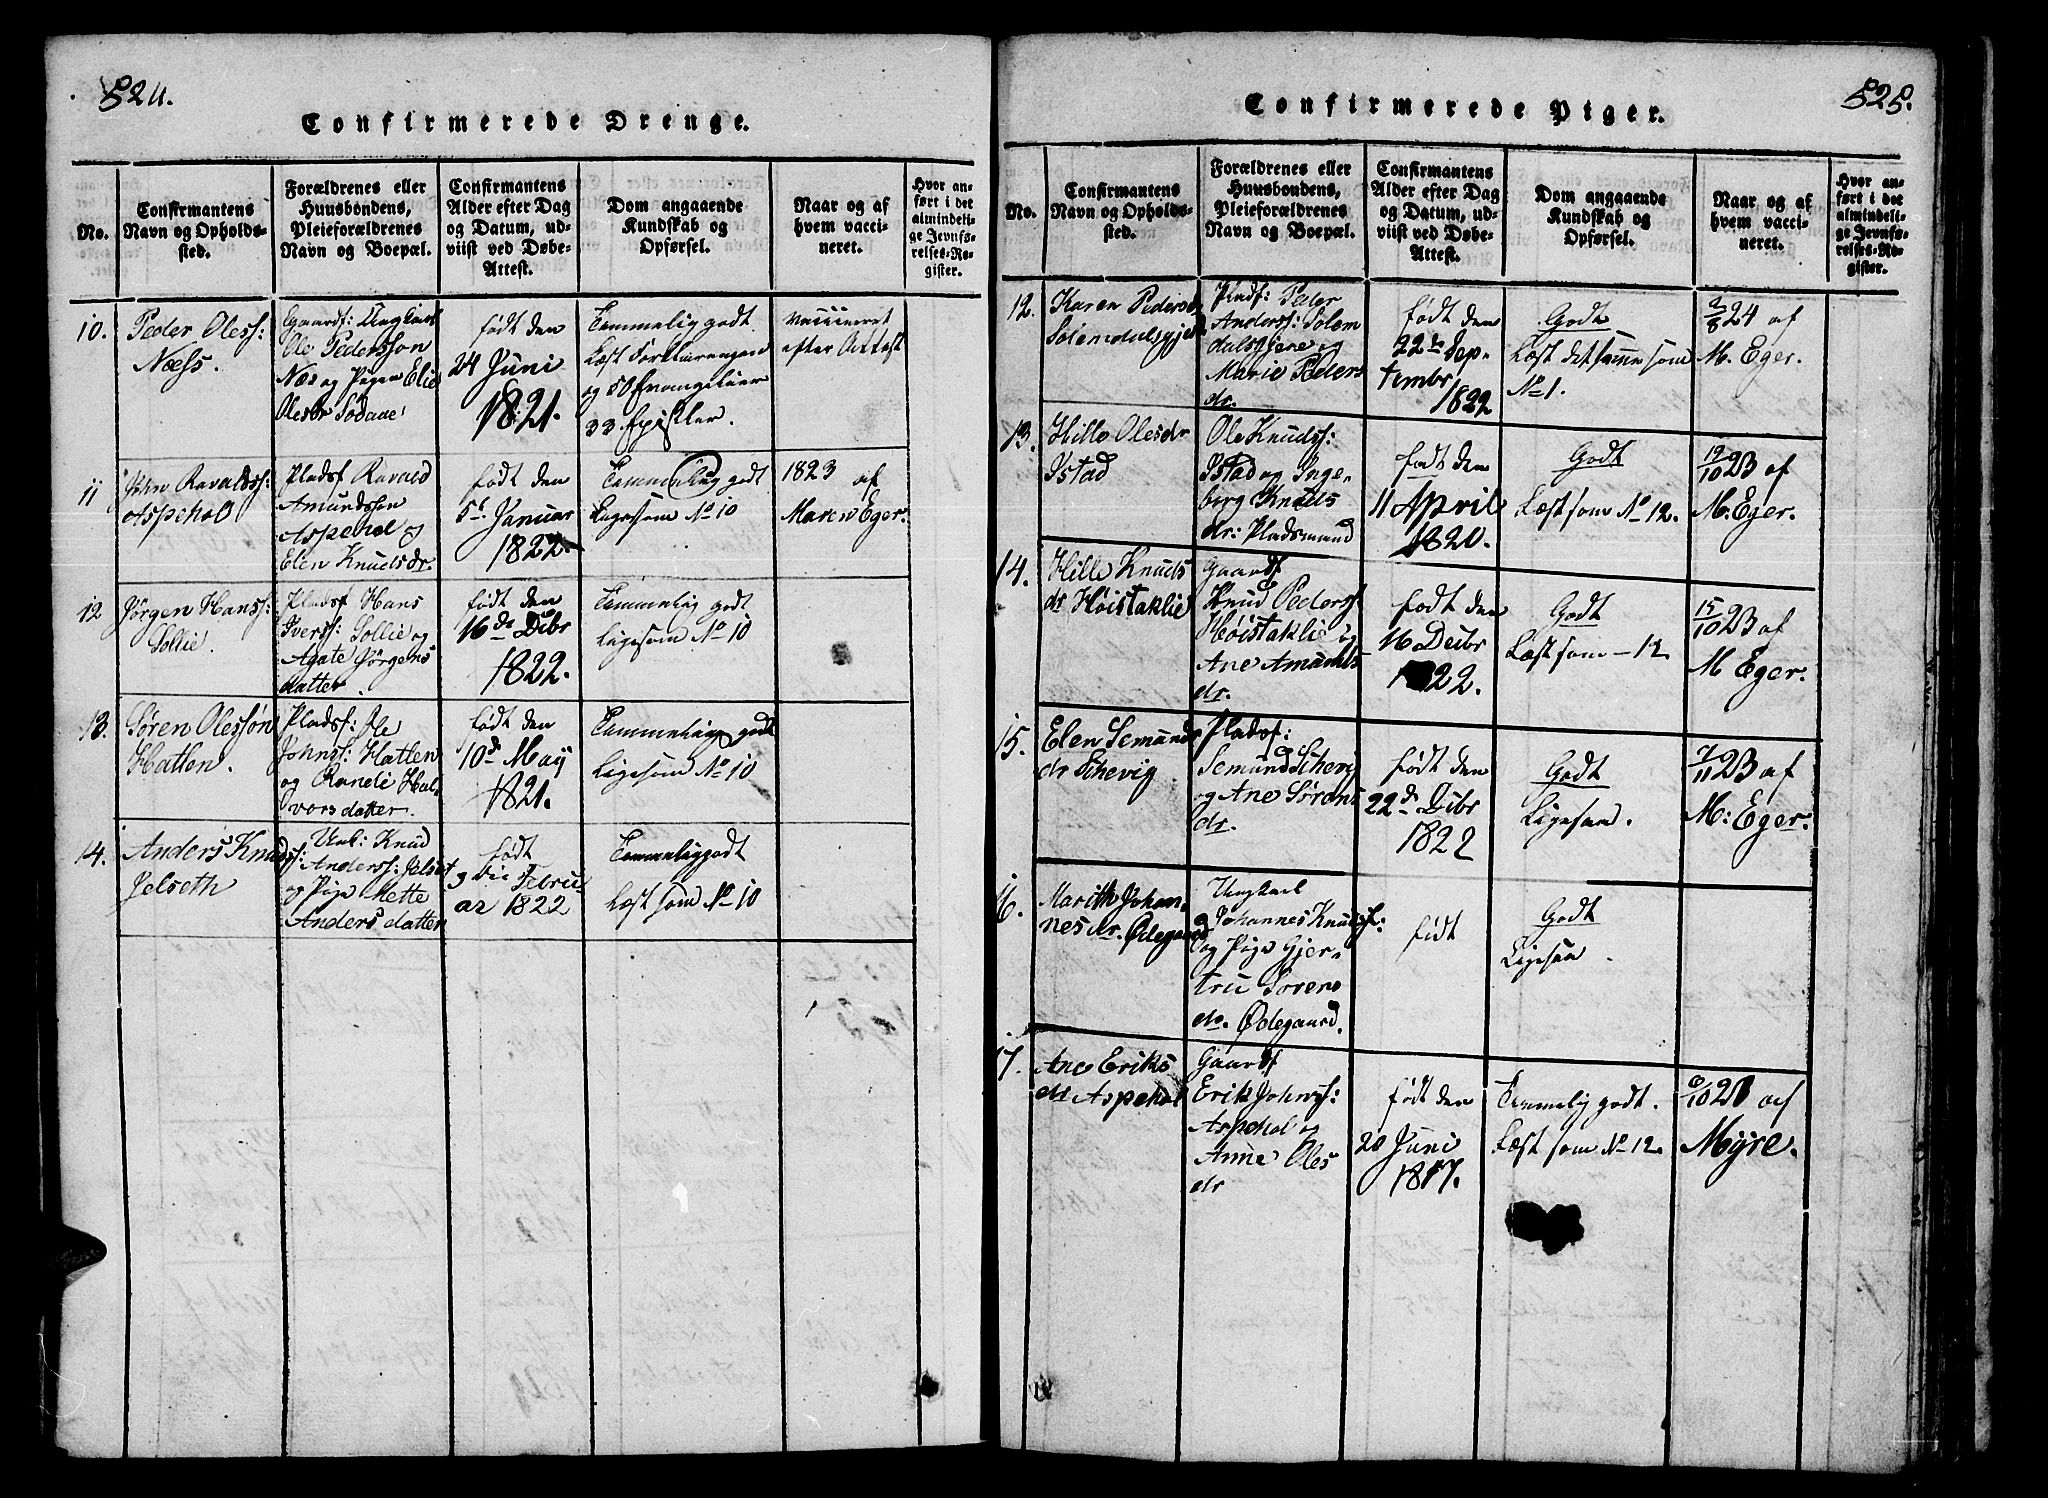 524.
Confirmerede Drenge.
No.
Confirmantens
Navn og Opholds-
sted.
Forældrenes eller
Huusbondens,
Pleieforældrenes
Navn og Boepæl.
Confirmantens
Alder efter Dag
og Datum, ud-
viist ved Døbe-
Attest.
Dom angaaende
Kundskab og
Opførsel.
Naar og af
hvem vacci-
neret.
Hvor an-
ført i det
almindeli-
ge Jevnfø-
relses-Re-
gister.
10.
Peder Oless:
Næss.
Ole Pedersson
Næs og Pigen Elie
Olesdr Sodaae
født den
24 Juni
1821.
Temmelig godt
Læst Forklaringen
og 50 Evangelier
33 Epistler.
vaccineret
efter Attest
11
John Ravalds:
Aspehol
Pladsf Ravald
Amundsson
Aspehol og
Elen Knudsdr.
født den
5t Januar
1822.
Temmelig godt
Ligesom No 10
1823 af
Maren Eger.
12
Jørgen Hanss:
Sollie.
Pladsf Hans
Iverss: Sollie og
Agate Jørgens
datter.
født den
16de Dcbr
1822.
Temmelig godt
Ligesom No 10
13.
Søren Olessøn
Hatten.
Pladsf: Ole
Johns: Hatten
og Randi Hal-
vorsdatter.
født den
10de May
1821.
Temmelig godt
Ligesom No 10
14.
Anders Knuds:
Jelseth
Unk: Knud
Anderss: Jelset
og Pige Mette
Andersdatter
født
3die Febru
ar 1822
Temmelig godt
Læst som No 10
525.
Confirmerede Piger.
No.
Confirmantens
Navn og Opholds-
sted.
Forældrenes eller
Huusbondens,
Pleieforældrenes
Navn og Boepæl.
Confirmantens
Alder efter Dag
og Datum, ud-
viist ved Døbe-
Attest.
Dom angaaende
Kundskab og
Opførsel.
Naar og af
hvem vacci-
neret.
Hvor an-
ført i det
almindeli-
ge Jevnfø-
relses-Re-
gister.
12.
Karen Pedersdr
Solemdalsgjere
Pladsf: Peder
Anderss: Solem
dalsgjere og
Marie Peders
dr.
født den
22de Sep-
tembr
1822
Godt
Læst det samme som
No 1.
2/8 24 af
M. Eger.
13.
Hille Olesdr
Istad
Ole Knuds:
Istad og Inge-
borg Knuds
dr: Pladsmand
født den
11 April
1820.
Godt
Læst som No 12.
19/10 23 af
M. Eger.
14.
Hille Knuds
dr Høistaklie
Gaardf
Knud Pederss
Høistaklie og
Ane Amunds
dr.
født den
16 Decbr
1822.
Godt
Læst som - 12
15/10 23 af
M Eger.
15.
Elen Semunds
dr Schevig
Pladsf:
Semund Schevig
og Ane Sørens
dr.
født den
22de Dcbr
1822
Godt
Ligesaa.
7/11 23 af
M: Eger.
16.
Marith Johan-
nesdr. Ødegaard
Ungkarl
Johannes Knuds:
og Pige Gjer-
tru Sorens
dr. Ødegaard.
født
Godt
Ligesaa.
17.
Ane Eriks
dr Aspehol
Gaardf
Erik Johns:
Aspehol og
Anne Oles
dr
født den
20 Juni
1817.
Temmelig godt.
Læst som No 12.
af
Myre.